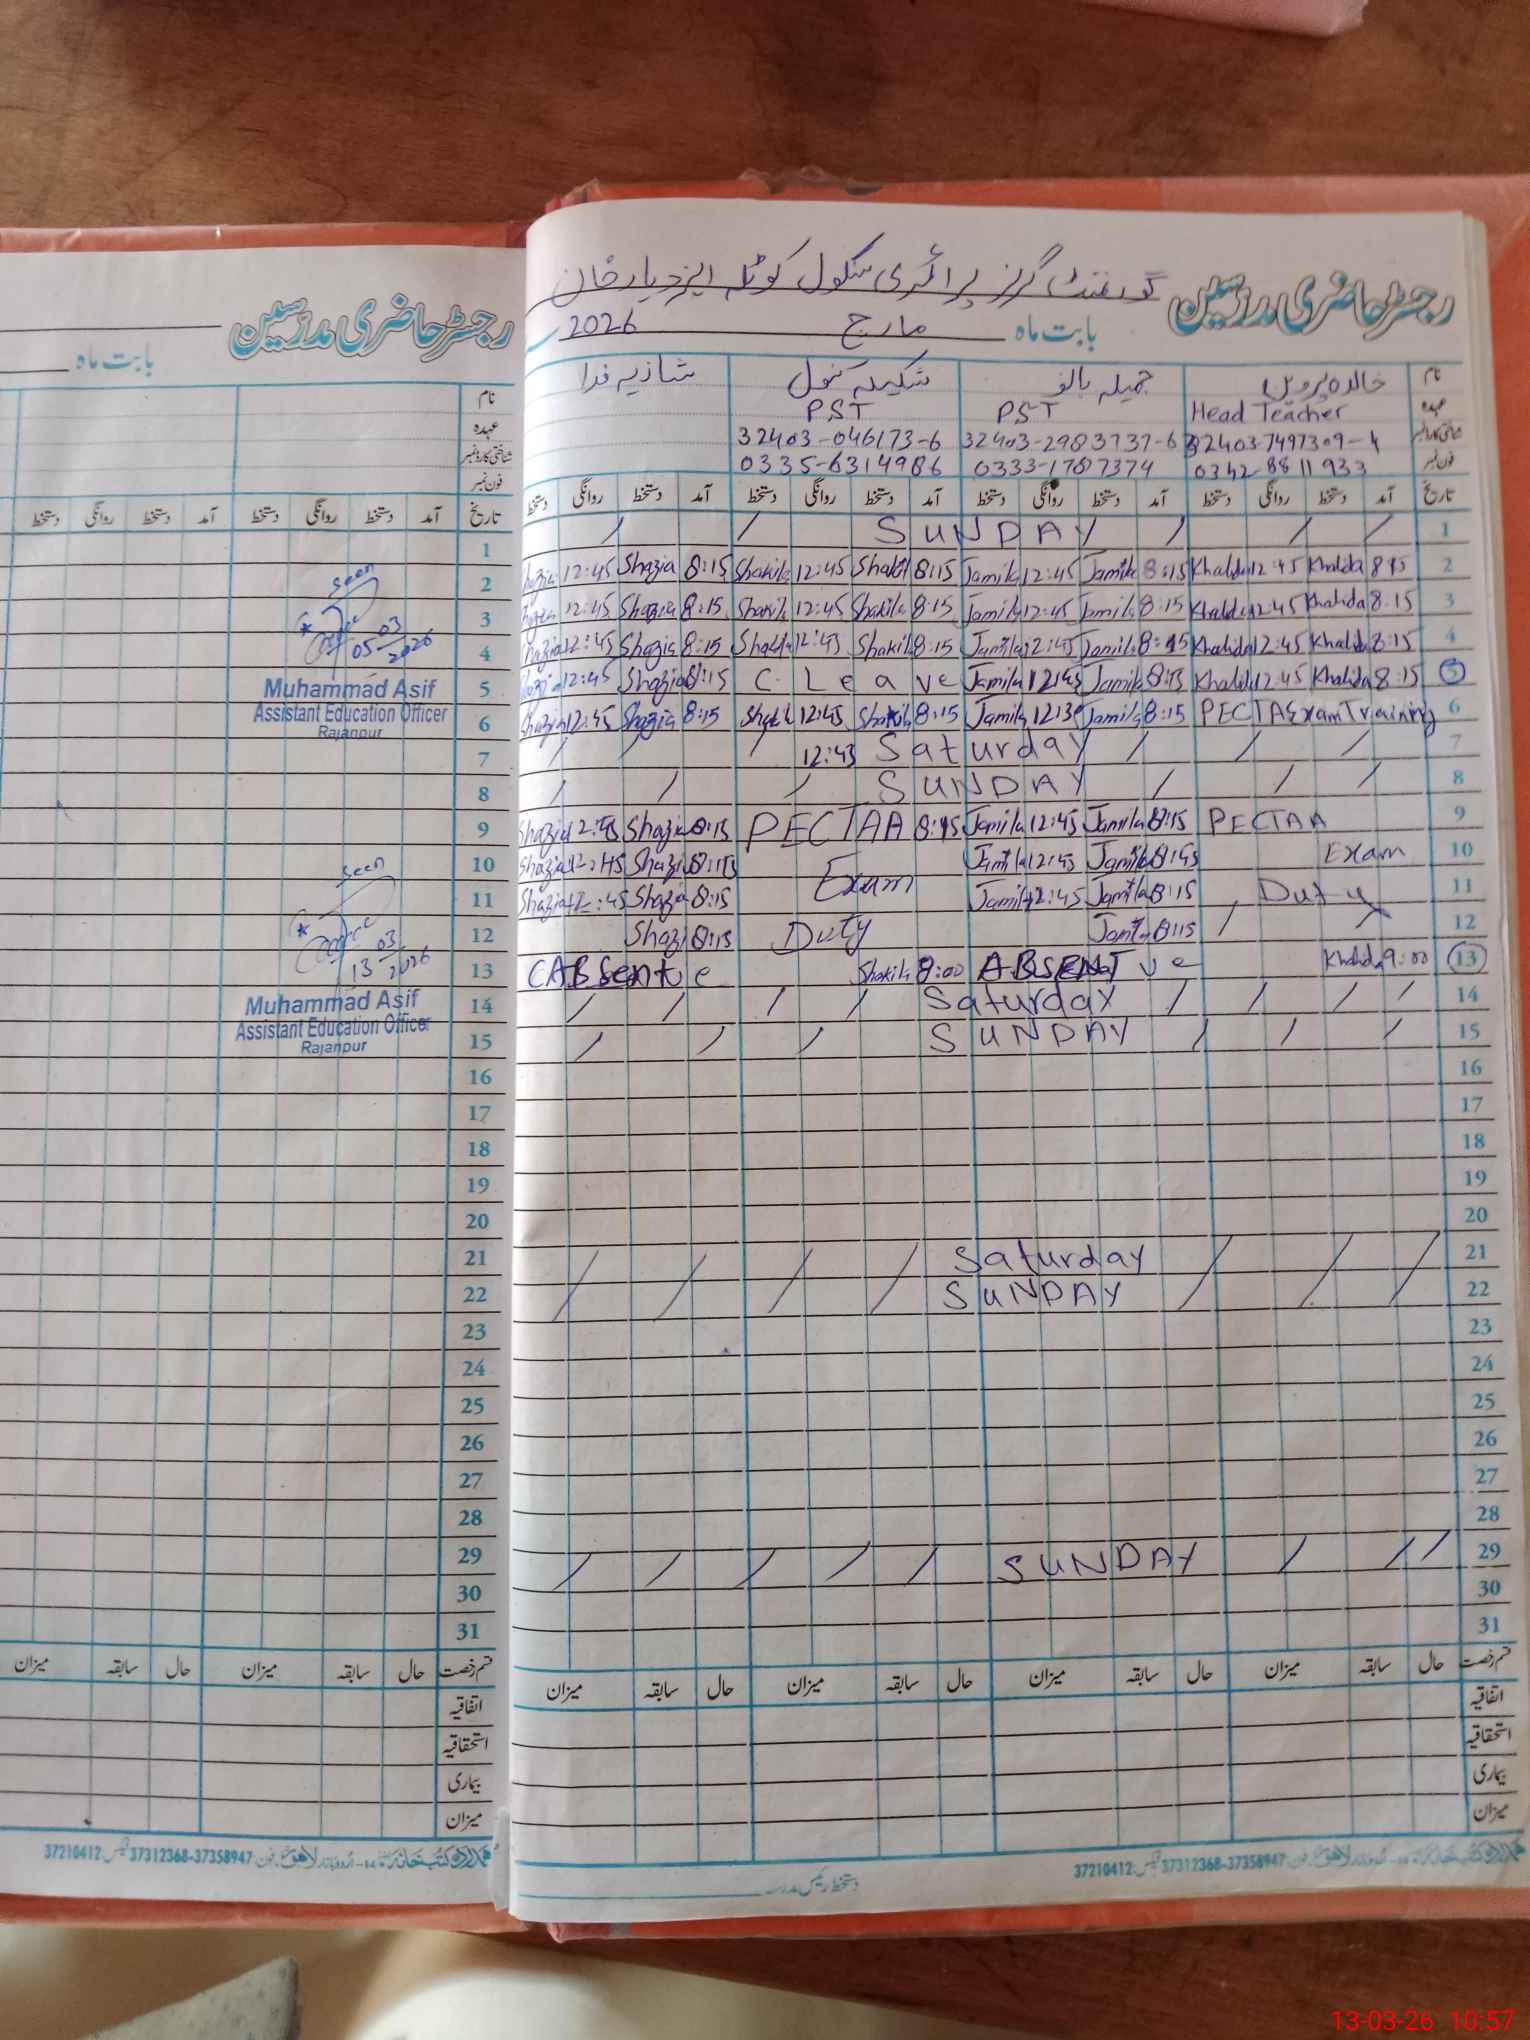 رجسٹر حاضری مدرسین
بابت ماہ
نام
عہدہ
شناختی کارڈ نمبر
فون نمبر
تاریخ آمد دستخط روانگی دستخط آمد دستخط روانگی دستخط
1
2
seen
3
4
05 03 2026
5
Muhammad Asif
Assistant Education Officer
Rajanpur
6
7
8
9
10
seen
11
12
13
13 03 2026
Muhammad Asif
Assistant Education Officer
Rajanpur
14
15
16
17
18
19
20
21
22
23
24
25
26
27
28
29
30
31
قسم رخصت حال سابقہ میزان حال سابقہ میزان
اتفاقیہ
استحقاقیہ
بیماری
میزان
37210412 37312368-37358947
رجسٹر حاضری مدرسین گورنمنٹ گرلز پرائمری سکول کوٹلہ
بابت ماہ مارچ 2026
نام خالدہ پروین جمیلہ شکیلہ کنول شازیہ فدا
عہدہ Head Teacher PST PST
شناختی کارڈ نمبر 32403-2983737-6 32403-046173-6
فون نمبر 0342-8811933 0335-6314986
تاریخ آمد دستخط روانگی دستخط آمد دستخط روانگی دستخط آمد دستخط روانگی دستخط آمد دستخط روانگی دستخط
SUNDAY 1
12:45 Shazia 8:15 Shakila 12:45 Shakil 8:15 Jamila 12:45 Jamila 8:15 Khalida 12:45 Khalida 8:15 2
12:45 Shazia 8:15 Shakil 12:45 Shakila 8:15 Jamila 12:45 Jamila 8:15 Khalida 12:45 Khalida 8:15 3
Shazia 12:45 Shazia 8:15 Shakila 12:45 Shakil 8:15 Jamila 12:45 Jamila 8:15 Khalida 12:45 Khalida 8:15 4
12:45 Shazia 8:15 C. Leave Jamila 12:45 Jamila 8:15 Khalida 12:45 Khalida 8:15 5
Shazia 12:45 Shazia 8:15 Shakil 12:45 Shakila 8:15 Jamila 12:30 Jamila 8:15 PECTA Exam Training 6
12:45 Saturday 7
SUNDAY 8
Shazia 12:45 Shazia 8:15 PECTAA 8:15 Jamila 12:45 Jamila 8:15 PECTAA 9
Shazia 12:45 Shazia 8:15 Exam Jamila 12:45 Jamila 8:15 Exam 10
Shazia 12:45 Shazia 8:15 Jamila 12:45 Jamila 8:15 Duty 11
Shazi 8:15 Duty Jamila 8:15 12
ABSent Shakila 8:00 ABSENT Khalida 9:00 13
Saturday 14
SUNDAY 15
16
17
18
19
20
Saturday 21
SUNDAY 22
23
24
25
26
27
28
SUNDAY 29
30
31
قسم رخصت حال سابقہ میزان حال سابقہ میزان حال سابقہ میزان حال سابقہ میزان
اتفاقیہ
استحقاقیہ
بیماری
میزان
37210412 37312368-37358947
13-03-26 10:57